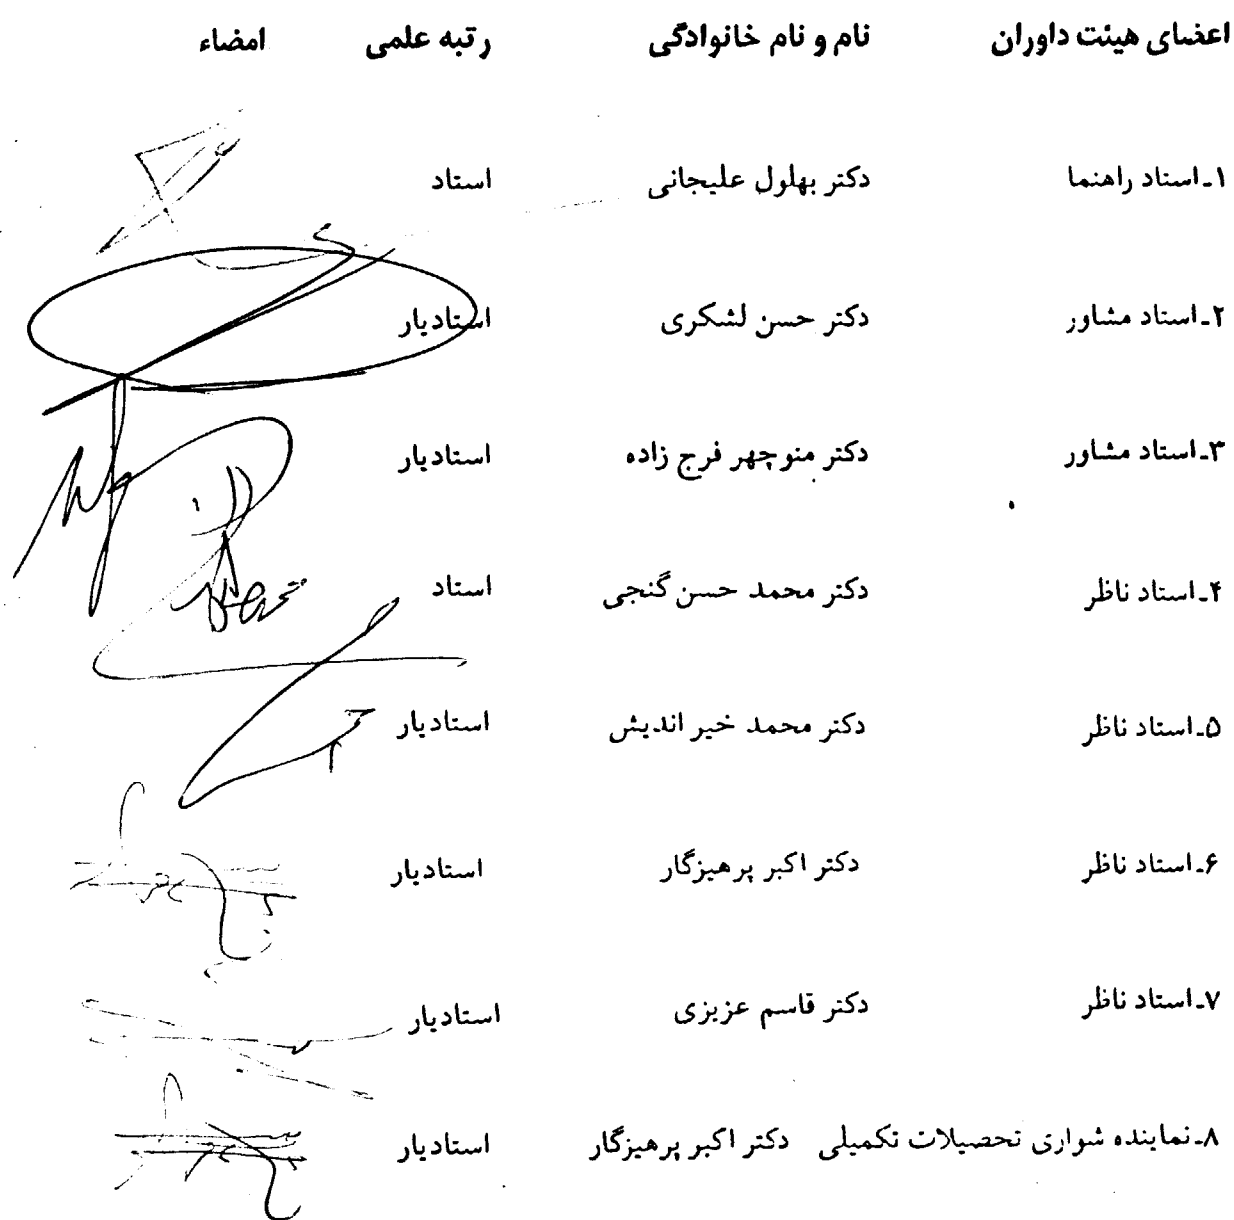 اعضای هیئت داوران نام و نام خانوادگی رتبه علمی امضاء
۱ـ استاد راهنما دکتر بهلول علیجانی استاد
۲ـ استاد مشاور دکتر حسن لشکری استادیار
۳ـ استاد مشاور دکتر منوچهر فرج زاده استادیار
۴ـ استاد ناظر دکتر محمد حسن گنجی استاد
۵ـ استاد ناظر دکتر محمد خیر اندیش استادیار
۶ـ استاد ناظر دکتر اکبر پرهیزگار استادیار
۷ـ استاد ناظر دکتر قاسم عزیزی استادیار
۸ـ نماینده شواری تحصیلات تکمیلی دکتر اکبر پرهیزگار استادیار